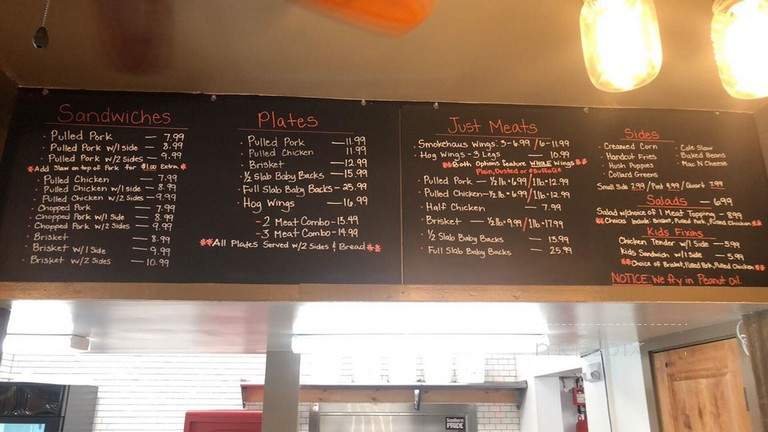 Sandwiches
· Pulled Pork — 7.99
· Pulled Pork w/1 side — 8.99
· Pulled Pork w/2 Sides — 9.99
**Add Slaw on top of Pork for $1.00 Extra**
· Pulled Chicken — 7.99
· Pulled Chicken w/1 side — 8.99
· Pulled Chicken w/2 sides — 9.99
· Chopped Pork — 7.99
· Chopped Pork w/1 Side — 8.99
· Chopped Pork w/2 Sides — 9.99
· Brisket — 8.99
· Brisket w/1 Side — 9.99
· Brisket w/2 Sides — 10.99
Plates
· Pulled Pork — 11.99
· Pulled Chicken — 11.99
· Brisket — 12.99
· 1/2 Slab Baby Backs — 15.99
· Full Slab Baby Backs — 25.99
· Hog Wings — 16.99
- 2 Meat Combo - 13.99
- 3 Meat Combo - 14.99
**All Plates Served w/2 Sides & Bread**
Just Meats
· Smokehaus Wings: 3 - 6.99 / 6 - 11.99
· Hog Wings - 3 Legs — 10.99
**Both Options Feature WHOLE Wings**
Plain, Dusted or
· Pulled Pork — 1/2 lb • 6.99 / 1 lb • 12.99
· Pulled Chicken — 1/2 lb • 6.99 / 1 lb • 12.99
· Half Chicken — 7.99
· Brisket — 1/2 lb • 9.99 / 1 lb • 17.99
· 1/2 Slab Baby Backs — 13.99
· Full Slab Baby Backs — 25.99
Sides
· Creamed Corn
· Handcut Fries
· Hush Puppies
· Collard Greens
· Cole Slaw
· Baked Beans
· Mac N Cheese
Small Side 2.99 / Pint 3.99 / Quart 7.99
Salads — 6.99
Salad w/choice of 1 Meat Topping — 8.99
**Choices Include: Brisket, Pulled Pork, Pulled Chicken**
Kids Fixins
· Chicken Tender w/1 Side — 5.99
· Kids Sandwich w/1 Side — 5.99
**Choice of Brisket, Pulled Pork, Pulled Chicken**
NOTICE: We fry in Peanut Oil.
Southern
PRIDE